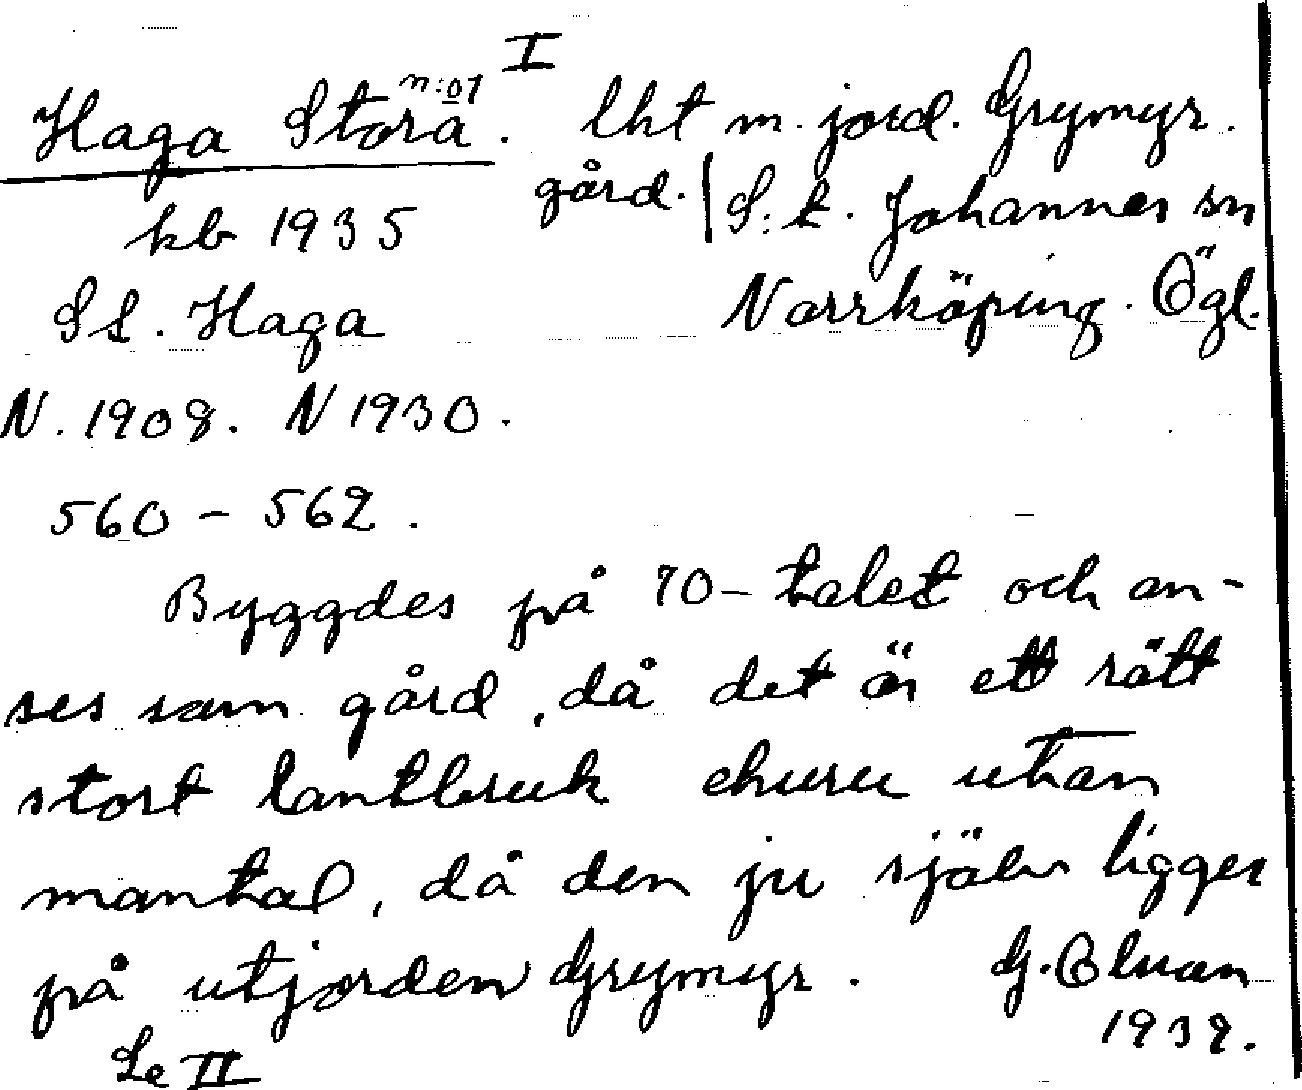 I
Haga Stora n:o1. lht m. jord. Grymyr.
gård. S:t. Johannes sn
kb 1935
St. Haga Norrköping. Ögl.
N. 1908. N 1930.
560 - 562.
Byggdes på 70-talet och an-
ses som gård, då det är ett rätt
stort lantbruk ehuru utan
mantal, då den ju själv ligger
på utjorden Grymyr. G.
193
Se II